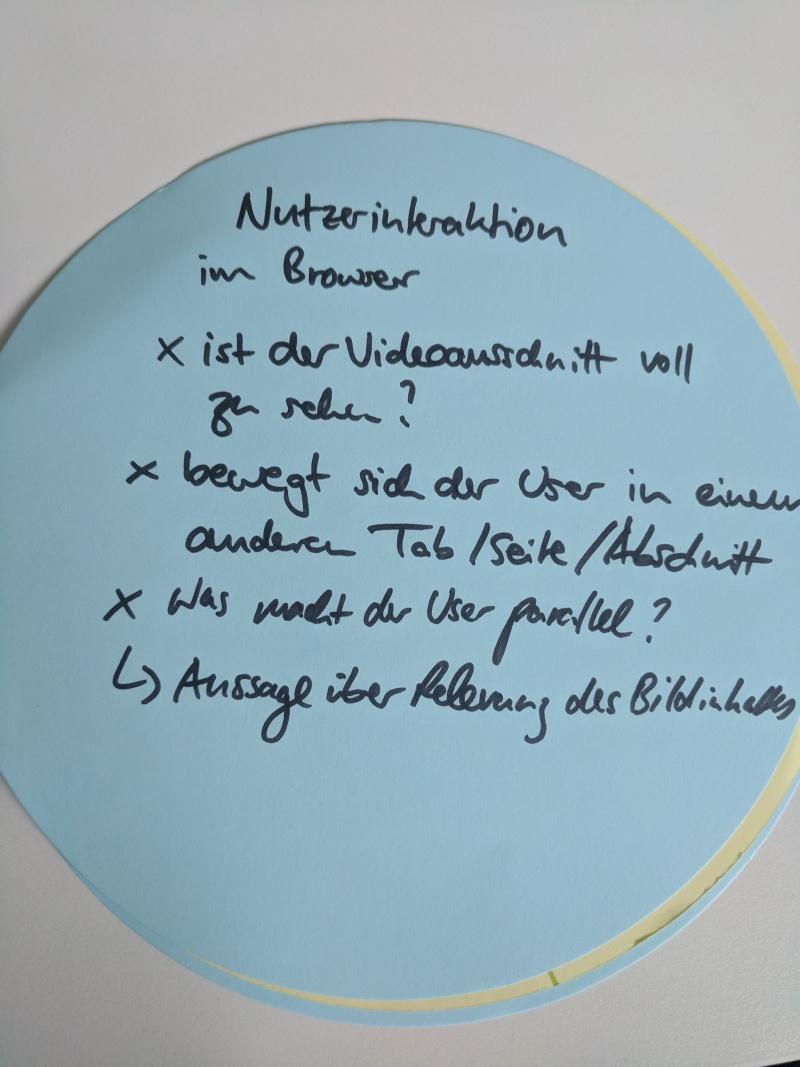 Nutzerinteraktion
im Browser
x ist der Videoausschnitt voll
zu sehen?
x bewegt sich der User in einem
anderen Tab/Seite/Abschnitt
x Was macht der User parallel?
↳ Aussage über Relevanz des Bildinhaltes